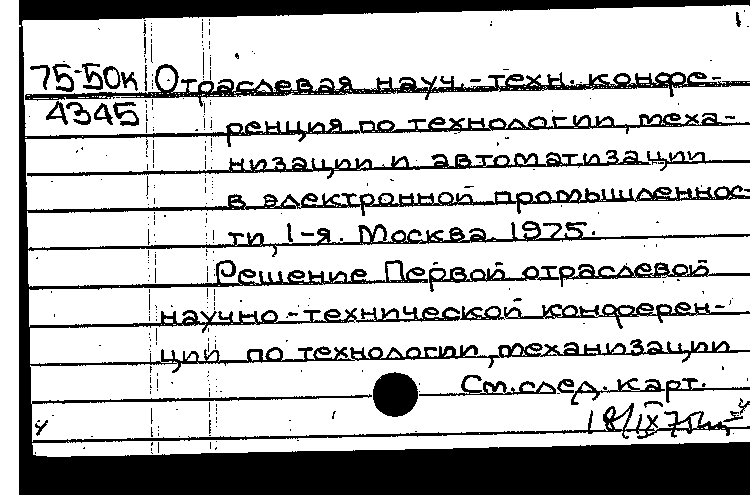 1
75-50к Отраслевая науч.-техн. конфе-
4345
ренция по технологии, меха-
низации и автоматизации
в электронной промышленнос-
ти, 1-я. Москва. 1975.
Решение Первой отраслевой
научно-технической конферен-
ции по технологии, механизации
См. след. карт.
18/IX 75